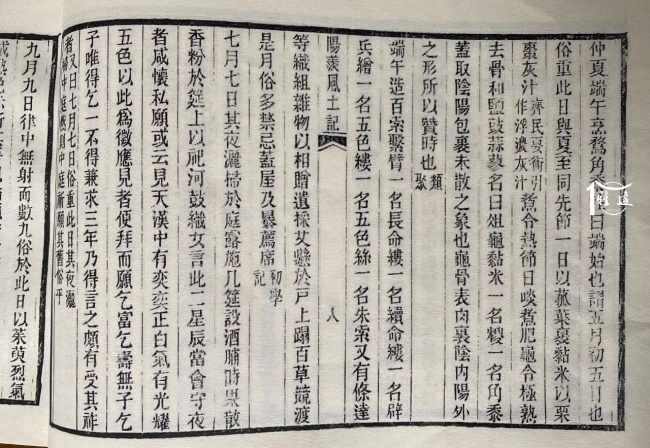 仲夏端午烹鶩角黍 端始也謂五月初五日也
俗重此日與夏至同先節一日以菰葉裹黏米以栗
棗灰汁 齊民要術引作浮濃灰汁 煮令熟節日啖煮肥龜令極熟
去骨和鹽豉蒜蓼名曰俎龜黏米一名糉一名角黍
蓋取陰陽包裹未散之象也龜骨表肉裏陰內陽外
之形所以贊時也 類聚
端午造百索繫臂一名長命縷一名續命縷一名辟
兵繒一名五色縷一名五色絲一名朱索又有條達
陽羨風土記 八
等織組雜物以相贈遺採艾懸於戶上蹋百草競渡
是月俗多禁忌蓋屋及暴薦席 初學記
七月七日其夜灑掃於庭露施几筵設酒脯時果散
香粉於筵上以祀河鼓織女言此二星辰當會守夜
者咸懷私願或云見天漢中有奕奕正白氣有光耀
五色以此為徵應見者便拜而願乞富乞壽無子乞
子唯得乞一不得兼求三年乃得言之頗有受其祚
者 又曰七月七日俗重此日其夜灑掃中庭然則中庭所願其舊俗乎
九月九日律中無射而數九俗於此日以茱萸烈氣